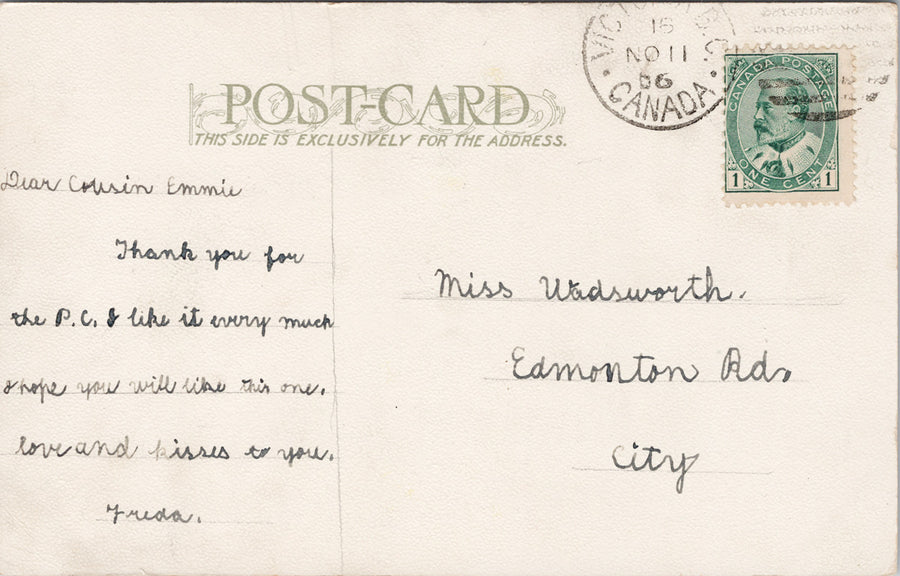 VICTORIA B.C.
16
NO 11
06
CANADA
CANADA POSTAGE
1 ONE CENT 1
POST-CARD
THIS SIDE IS EXCLUSIVELY FOR THE ADDRESS.
Dear Cousin Emmie
Thank you for
the P.C. I like it every much
I hope you will like this one.
love and kisses to you.
Freda.
Miss Wadsworth.
Edmonton Rd.
City